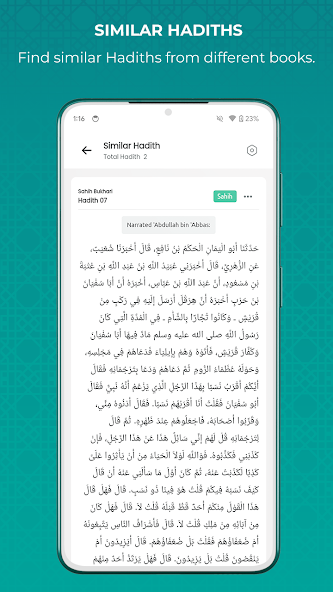 SIMILAR HADITHS
Find similar Hadiths from different books.
1:16
23%
Similar Hadith
Total Hadith 2
Sahih Bukhari
Hadith 07
Sahih
Narrated 'Abdullah bin 'Abbas:
حَدَّثَنَا أَبُو الْيَمَانِ الْحَكَمُ بْنُ نَافِعٍ، قَالَ أَخْبَرَنَا شُعَيْبٌ،
عَنِ الزُّهْرِيِّ، قَالَ أَخْبَرَنِي عُبَيْدُ اللَّهِ بْنُ عَبْدِ اللَّهِ بْنِ عُتْبَةَ
بْنِ مَسْعُودٍ، أَنَّ عَبْدَ اللَّهِ بْنَ عَبَّاسٍ، أَخْبَرَهُ أَنَّ أَبَا سُفْيَانَ
بْنَ حَرْبٍ أَخْبَرَهُ أَنَّ هِرَقْلَ أَرْسَلَ إِلَيْهِ فِي رَكْبٍ مِنْ
قُرَيْشٍ ـ وَكَانُوا تُجَّارًا بِالشَّأْمِ ـ فِي الْمُدَّةِ الَّتِي كَانَ
رَسُولُ اللَّهِ صلى الله عليه وسلم مَادَّ فِيهَا أَبَا سُفْيَانَ
وَكُفَّارَ قُرَيْشٍ، فَأَتَوْهُ وَهُمْ بِإِيلِيَاءَ فَدَعَاهُمْ فِي مَجْلِسِهِ،
وَحَوْلَهُ عُظَمَاءُ الرُّومِ ثُمَّ دَعَاهُمْ وَدَعَا بِتَرْجُمَانِهِ فَقَالَ
أَيُّكُمْ أَقْرَبُ نَسَبًا بِهَذَا الرَّجُلِ الَّذِي يَزْعُمُ أَنَّهُ نَبِيٌّ فَقَالَ
أَبُو سُفْيَانَ فَقُلْتُ أَنَا أَقْرَبُهُمْ نَسَبًا. فَقَالَ أَدْنُوهُ مِنِّي،
وَقَرِّبُوا أَصْحَابَهُ، فَاجْعَلُوهُمْ عِنْدَ ظَهْرِهِ. ثُمَّ قَالَ
لِتَرْجُمَانِهِ قُلْ لَهُمْ إِنِّي سَائِلٌ هَذَا عَنْ هَذَا الرَّجُلِ، فَإِنْ
كَذَبَنِي فَكَذِّبُوهُ. فَوَاللَّهِ لَوْلاَ الْحَيَاءُ مِنْ أَنْ يَأْثِرُوا عَلَىَّ
كَذِبًا لَكَذَبْتُ عَنْهُ، ثُمَّ كَانَ أَوَّلَ مَا سَأَلَنِي عَنْهُ أَنْ قَالَ
كَيْفَ نَسَبُهُ فِيكُمْ قُلْتُ هُوَ فِينَا ذُو نَسَبٍ. قَالَ فَهَلْ قَالَ
هَذَا الْقَوْلَ مِنْكُمْ أَحَدٌ قَطُّ قَبْلَهُ قُلْتُ لاَ. قَالَ فَهَلْ كَانَ
مِنْ آبَائِهِ مِنْ مَلِكٍ قُلْتُ لاَ. قَالَ فَأَشْرَافُ النَّاسِ يَتَّبِعُونَهُ
أَمْ ضُعَفَاؤُهُمْ فَقُلْتُ بَلْ ضُعَفَاؤُهُمْ. قَالَ أَيَزِيدُونَ أَمْ
يَنْقُصُونَ قُلْتُ بَلْ يَزِيدُونَ. قَالَ فَهَلْ يَرْتَدُّ أَحَدٌ مِنْهُمْ